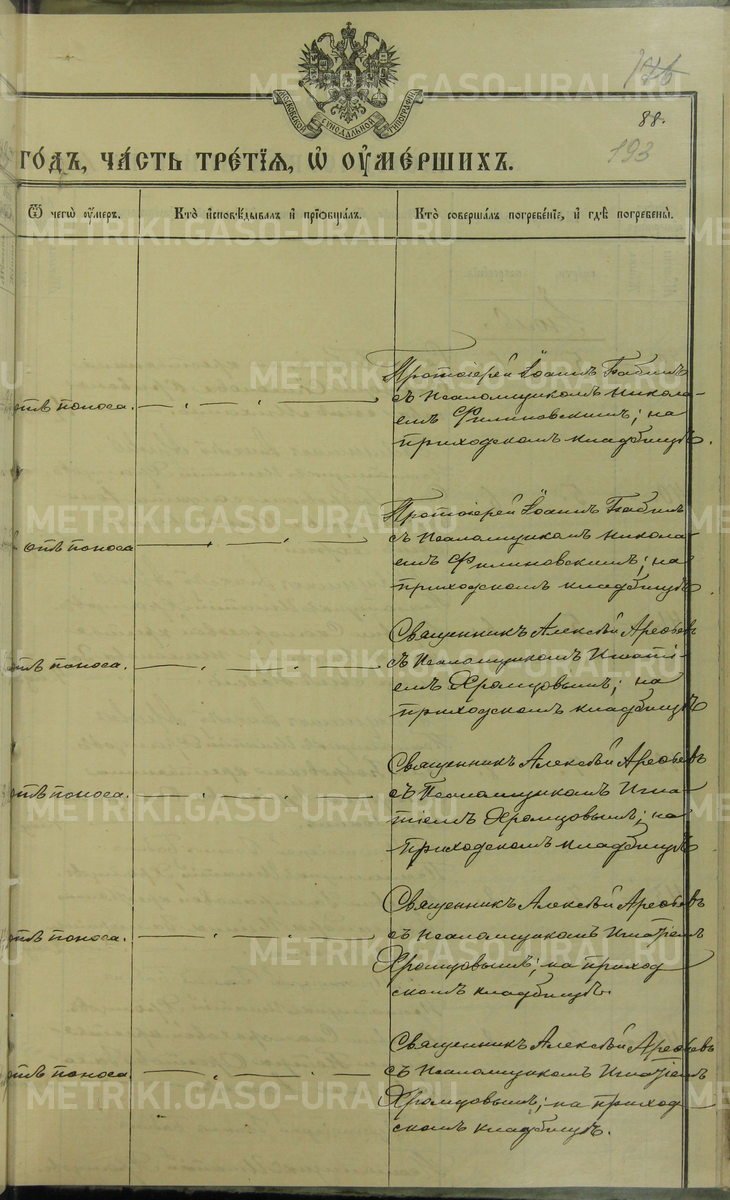 176
МОСКОВСКОЙ СѴНОДАЛЬНОЙ ТИПОГРАФІИ
88.
193
ГО́ДЪ, ЧА́СТЬ ТРЕ́ТІѦ, Ѿ ОУМЕ́РШИХЪ.
Ѿ чегѡ̀ оу́меръ.
Кто̀ и҆сповѣ́дывалъ и҆ прїѡбща́лъ.
Кто̀ соверша́лъ погребе́нїе, и҆ гдѣ̀ погребены̀.
отъ поноса.
Протоіерей Іоаннъ Бабинъ
съ Псаломщикомъ Никола-
емъ Филиновскимъ; на
приходскомъ кладбищѣ.
отъ поноса
Протоіерей Іоаннъ Бабинъ
съ Псаломщикомъ Никола-
емъ Филиновскимъ; на
приходскомъ кладбищѣ
отъ поноса.
Священникъ Алексѣй
съ Псаломщикомъ Игнаті-
емъ Хромцовымъ; на
приходскомъ кладбищѣ
отъ поноса.
Священникъ Алексѣй
съ Псаломщикомъ Игна-
тіемъ Хромцовымъ; на
приходскомъ кладбищѣ
отъ поноса.
Священникъ Алексѣй
съ Псаломщикомъ Игнатіемъ
Хромцовымъ; на приход
скомъ кладбищѣ.
отъ поноса.
Священникъ Алексѣй
съ Псаломщикомъ Игнатіемъ
Хромцовымъ; на приход
скомъ кладбищѣ.
METRIKI.GASO-URAL.RU